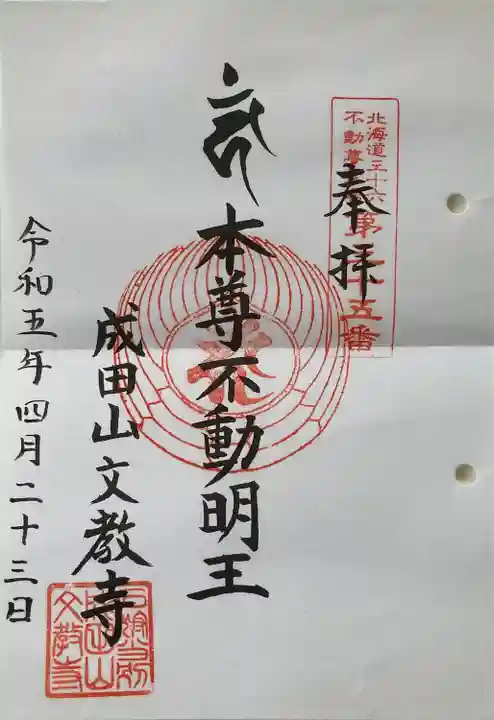 北海道三十六
不動尊
第二十五番
奉拝
本尊不動明王
成田山文教寺
令和五年四月二十三日
文教寺